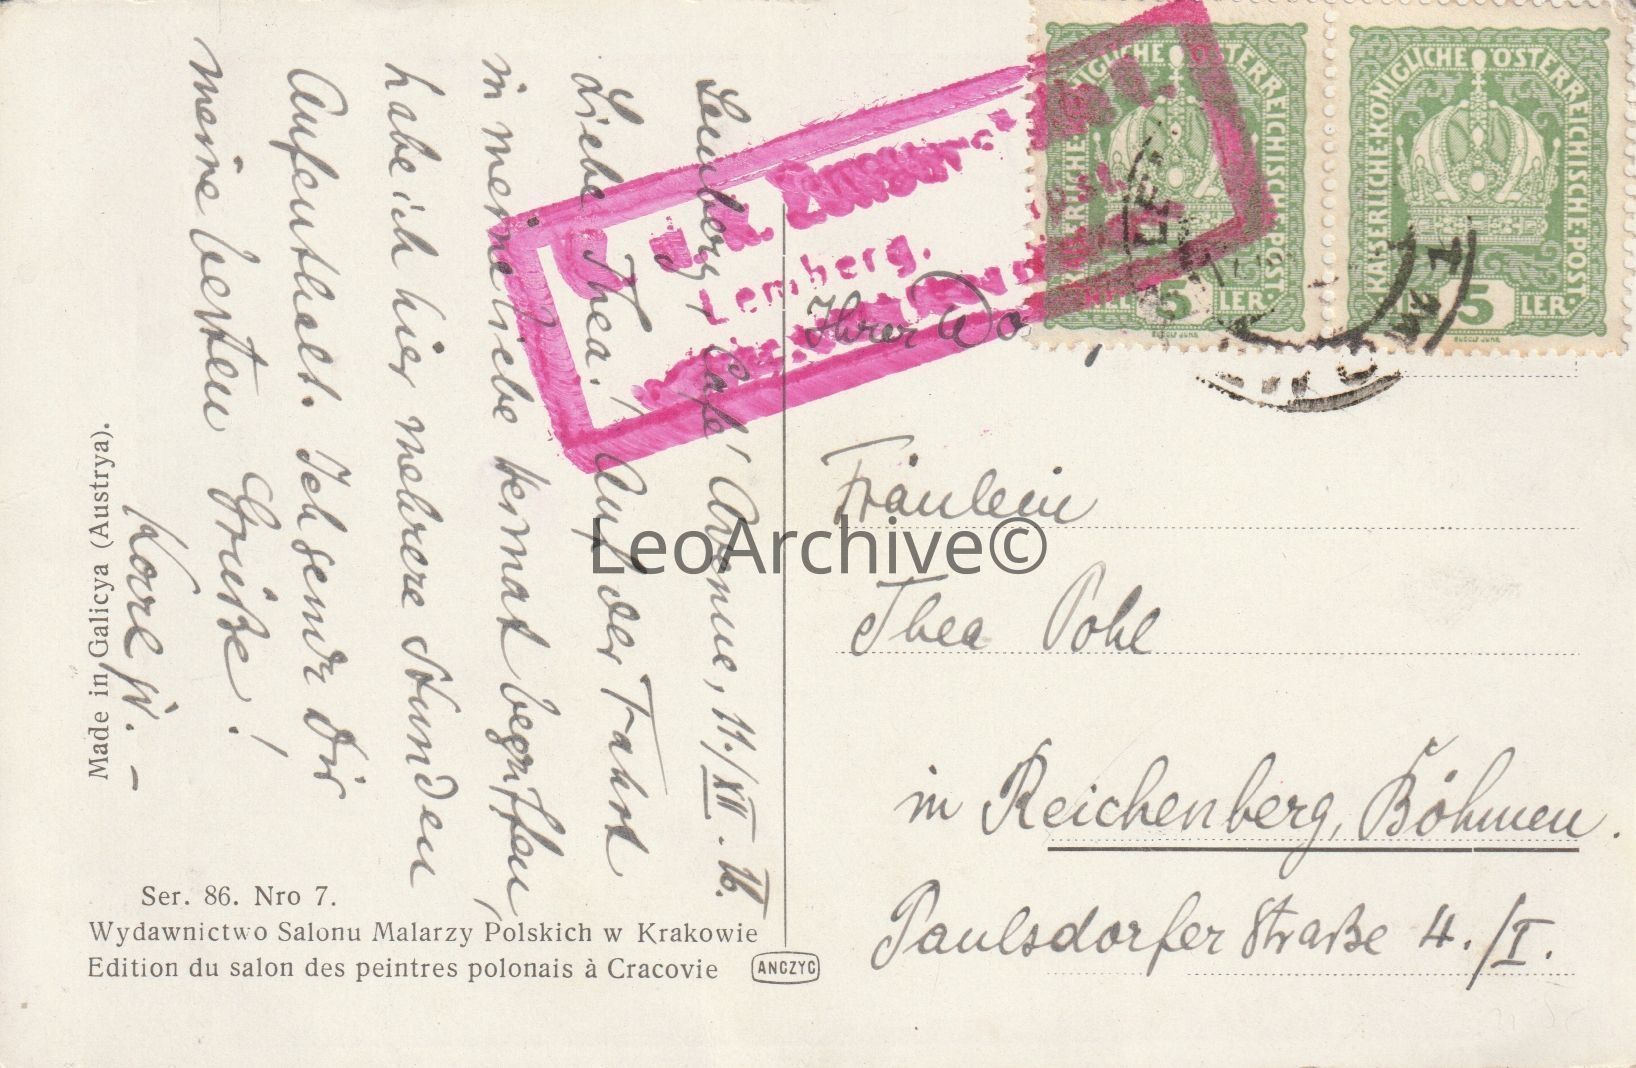 Lemberg, Café Avenue, 11./XII. 16.
Liebe Thea! Auf der Fahrt
in meine liebe Heimat begriffen,
habe ich hier mehrere Stunden
Aufenthalt. Ich sende dir
meine besten Grüße!
Karl
Made in Galicya (Austrya).
Ser. 86. Nro 7.
Wydawnictwo Salonu Malarzy Polskich w Krakowie
Edition du salon des peintres polonais à Cracovie
ANCZYC
k.u.k. Zensur
Lemberg.
KAISERLICHE·KÖNIGLICHE ÖSTERREICHISCHE·POST·
5
LER·
KAISERLICHE·KÖNIGLICHE ÖSTERREICHISCHE·POST·
5
LER·
RUDOLF JUNK
Ihrer
Fräulein
Thea Pohl
in Reichenberg, Böhmen.
Paulsdorfer Straße 4./I.
LeoArchive©